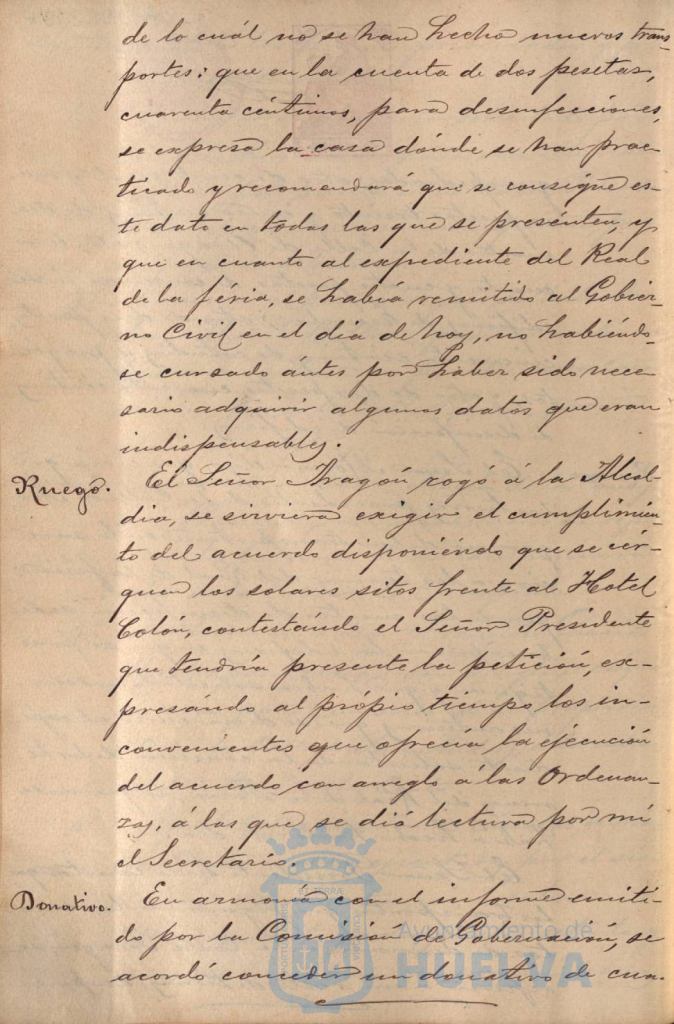 de lo cuál no se han hecho nuevos trans-
portes: que en la cuenta de dos pesetas,
cuarenta céntimos, para desinfecciones,
se expresa la casa dónde se han prac-
ticado y recomendará que se consigne es-
te dato en todas las que se presénten, y
que en cuanto al expediente del Real
de la féria, se había remitido al Gobier-
no Civil en el dia de hoy, no habiéndo-
se cursado ántes por haber sido nece-
sario adquirir algunos datos que eran
indispensables.
Ruego.
El Señor Aragón rogó á la Alcal-
dia, se sirviera exigir el cumplimien-
to del acuerdo disponiéndo que se cér-
quen los solares sitos frente al Hotel
Colón, contestándo el Señor Presidente
que tendría presente la petición, ex-
presándo al própio tiempo los in-
convenientes que ofrecia la ejecución
del acuerdo con arreglo á las Ordenan-
zas, á las que se dió lectura por mi
el Secretario.
Donativo.
En armonía con el informe emiti-
do por la Comisión de Gobernación, se
acordó conceder un donativo de cua-
Ayuntamiento de
HUELVA